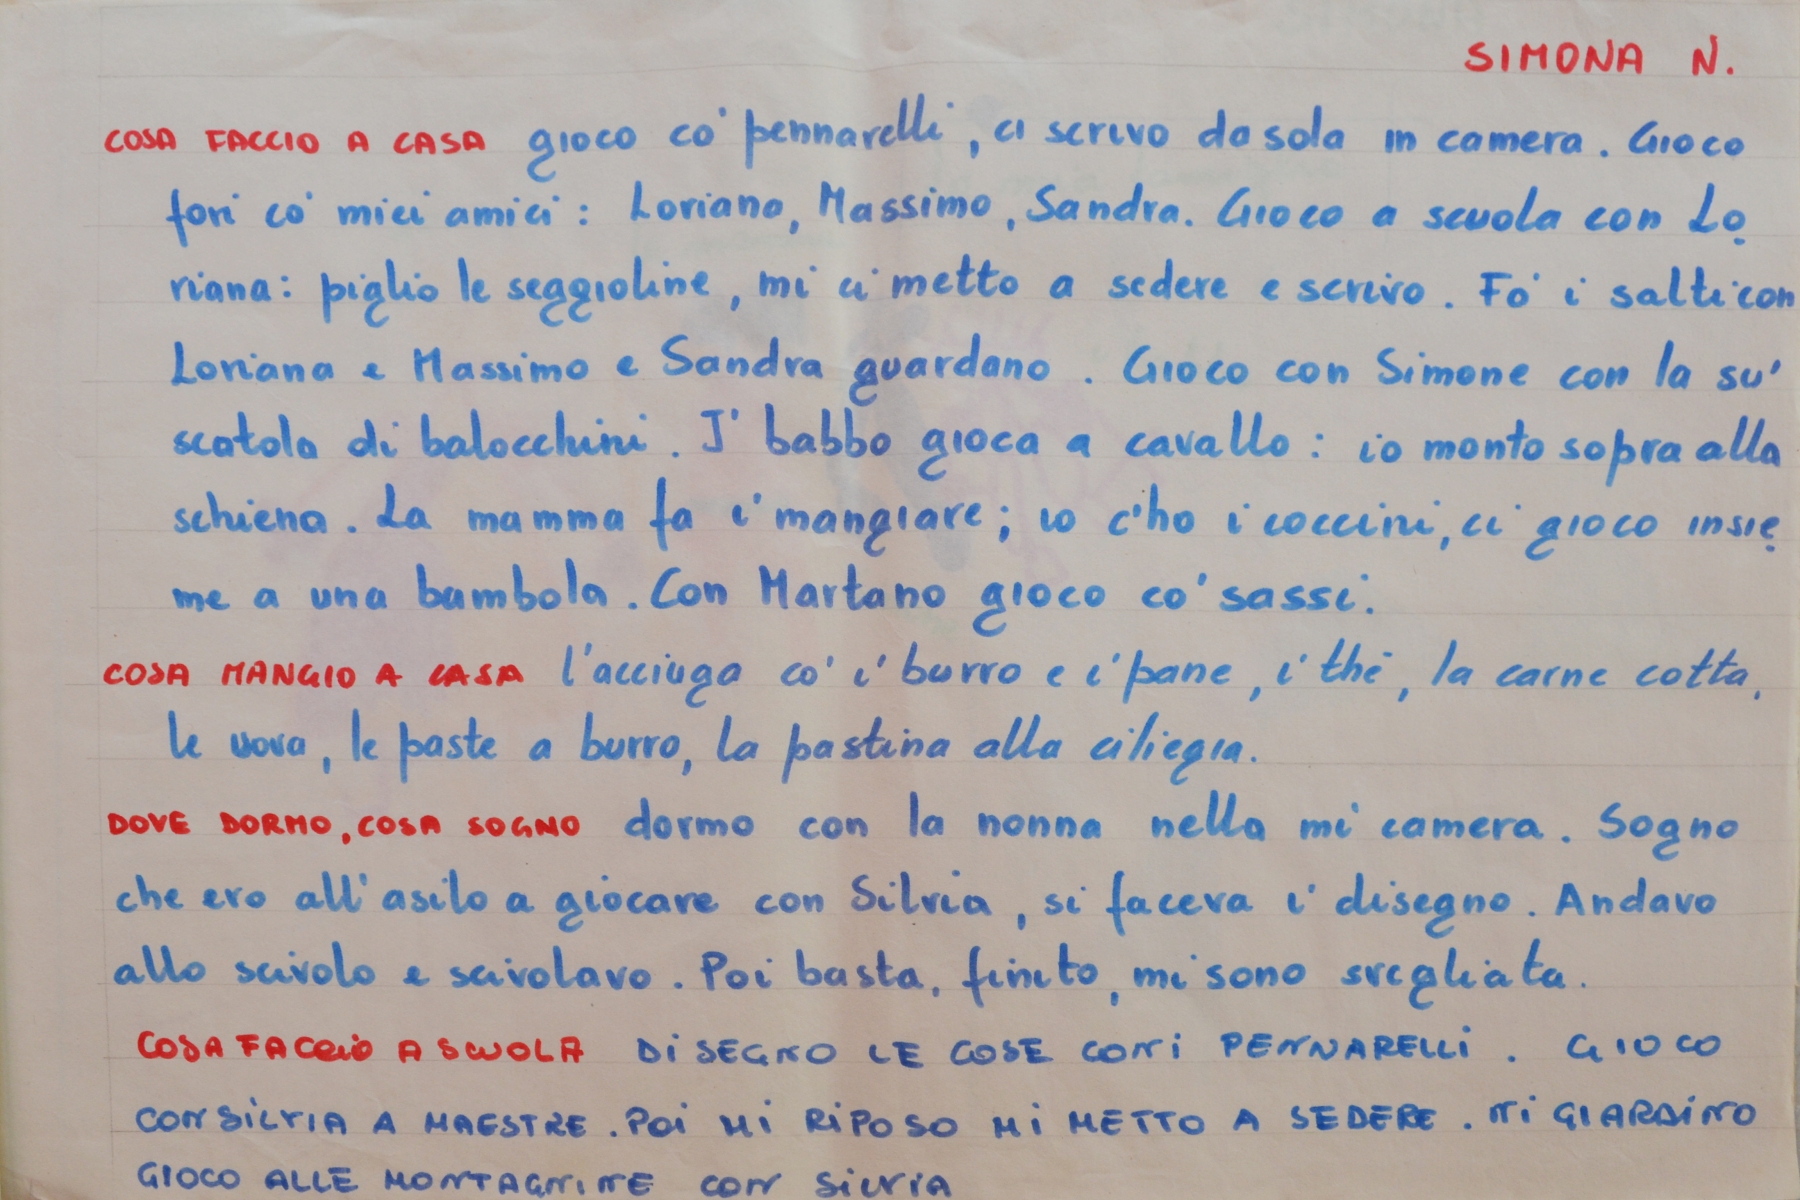 SIMONA N.
COSA FACCIO A CASA gioco co' pennarelli, ci scrivo da sola in camera. Gioco
fori co' miei amici: Loriana, Massimo, Sandra. Gioco a scuola con Lo
riana: piglio le seggioline, mi ci metto a sedere e scrivo. Fo' i salti con
Loriana e Massimo e Sandra guardano. Gioco con Simone con la su'
scatola di balocchini. I' babbo gioca a cavallo: io monto sopra alla
schiena. La mamma fa i' mangiare; io c'ho i coccini, ci gioco insie
me a una bambola. Con Martano gioco co' sassi.
COSA MANGIO A CASA l'acciuga co' i' burro e i' pane, i' thè, la carne cotta,
le uova, le paste a burro, la pastina alla ciliegia.
DOVE DORMO, COSA SOGNO dormo con la nonna nella mi' camera. Sogno
che ero all'asilo a giocare con Silvia, si faceva i' disegno. Andavo
allo scivolo e scivolavo. Poi basta, finito, mi sono svegliata.
COSA FACCIO A SCUOLA DISEGNO LE COSE CON I PENNARELLI. GIOCO
CON SILVIA A MAESTRE. POI MI RIPOSO MI METTO A SEDERE. NI GIARDINO
GIOCO ALLE MONTAGNINE CON SILVIA